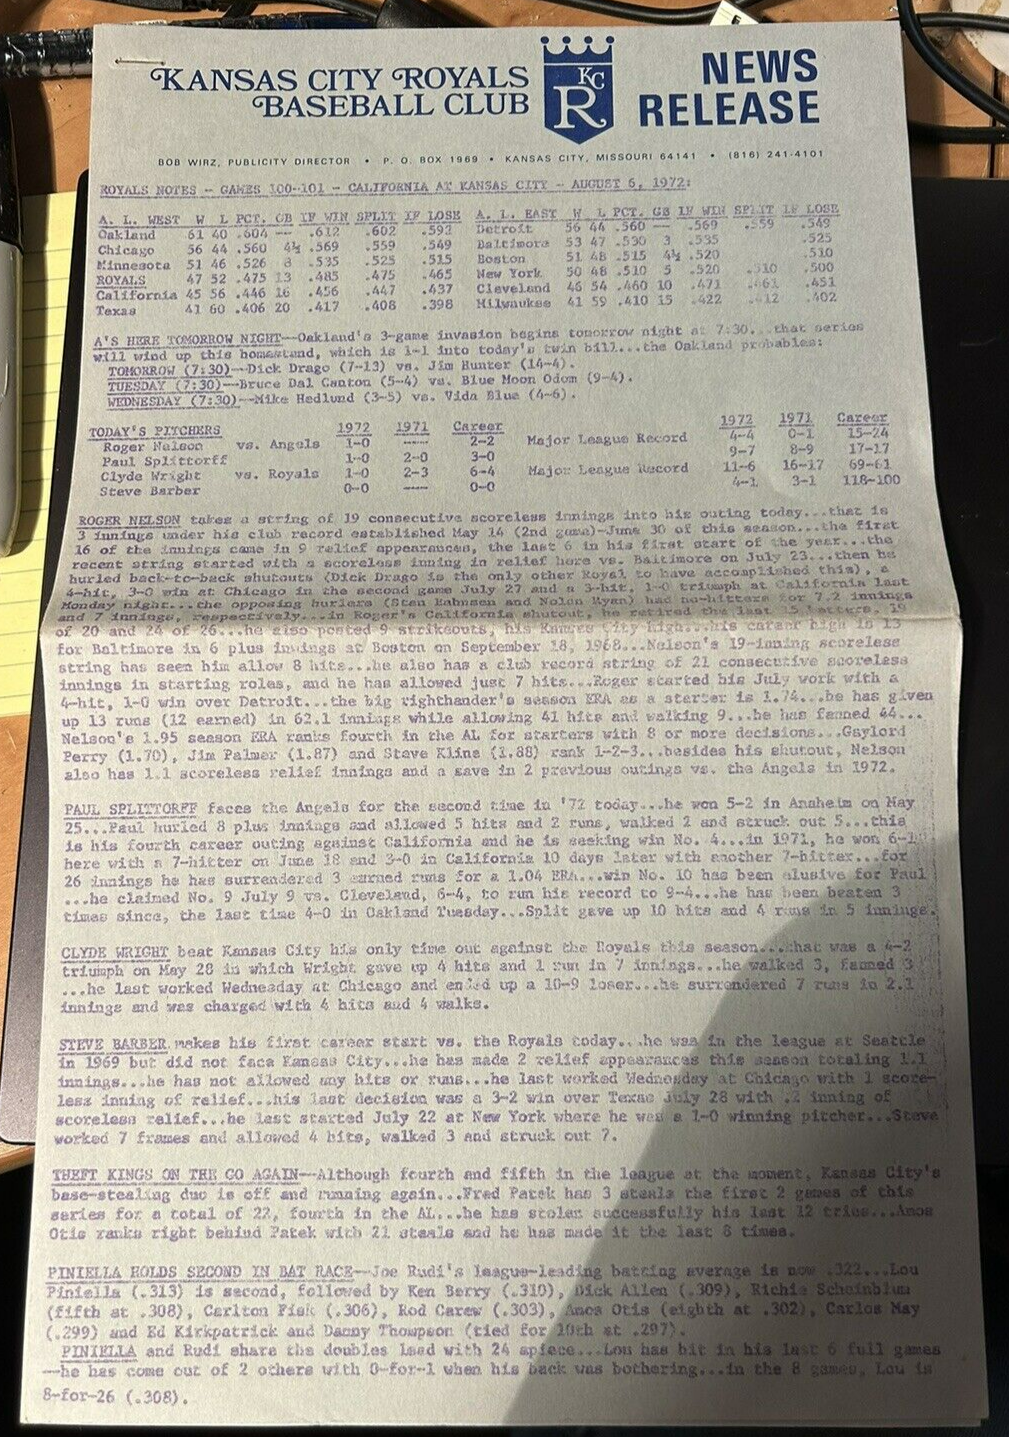 KANSAS CITY ROYALS
BASEBALL CLUB
KC
R
NEWS
RELEASE
BOB WIRZ, PUBLICITY DIRECTOR • P. O. BOX 1969 • KANSAS CITY, MISSOURI 64141 • (816) 241-4101
ROYALS NOTES - GAMES 100-101 - CALIFORNIA AT KANSAS CITY - AUGUST 6, 1972:
A. L. WEST W L PCT. GB IF WIN SPLIT IF LOSE A. L. EAST W L PCT. GB IF WIN SPLIT IF LOSE
Oakland 61 40 .604 -- .612 .602 .592 Detroit 56 44 .560 -- .569 .559 .549
Chicago 56 44 .560 4½ .569 .559 .549 Baltimore 53 47 .530 3 .535 .525
Minnesota 51 46 .526 8 .535 .525 .515 Boston 51 48 .515 4½ .520 .510
ROYALS 47 52 .475 13 .485 .475 .465 New York 50 48 .510 5 .520 .510 .500
California 45 56 .446 16 .456 .447 .437 Cleveland 46 54 .460 10 .471 .461 .451
Texas 41 60 .406 20 .417 .408 .398 Milwaukee 41 59 .410 15 .422 .412 .402
A'S HERE TOMORROW NIGHT--Oakland's 3-game invasion begins tomorrow night at 7:30...that series
will wind up this homestand, which is 1-1 into today's twin bill...the Oakland probables:
TOMORROW (7:30)--Dick Drago (7-13) vs. Jim Hunter (14-4).
TUESDAY (7:30)--Bruce Dal Canton (5-4) vs. Blue Moon Odom (9-4).
WEDNESDAY (7:30)--Mike Hedlund (3-5) vs. Vida Blue (4-6).
TODAY'S PITCHERS 1972 1971 Career 1972 1971 Career
Roger Nelson vs. Angels 1-0 ---- 2-2 Major League Record 4-4 0-1 15-24
Paul Splittorff 1-0 2-0 3-0 9-7 8-9 17-17
Clyde Wright vs. Royals 1-0 2-3 6-4 Major League Record 11-6 16-17 69-61
Steve Barber 0-0 ---- 0-0 4-1 3-1 118-100
ROGER NELSON takes a string of 19 consecutive scoreless innings into his outing today...that is
3 innings under his club record established May 14 (2nd game)-June 30 of this season...the first
16 of the innings came in 9 relief appearances, the last 6 in his first start of the year...the
recent string started with a scoreless inning in relief here vs. Baltimore on July 23...then he
hurled back-to-back shutouts (Dick Drago is the only other Royal to have accomplished this), a
4-hit, 3-0 win at Chicago in the second game July 27 and a 3-hit, 1-0 triumph at California last
Monday night...the opposing hurlers (Stan Bahnsen and Nolan Ryan) had no-hitters for 7.2 innings
and 7 innings, respectively...in Roger's California shutout, he retired the last 15 batters, 19
of 20 and 24 of 26...he also posted 9 strikeouts, his Kansas City high...his career high is 13
for Baltimore in 6 plus innings at Boston on September 18, 1968...Nelson's 19-inning scoreless
string has seen him allow 8 hits...he also has a club record string of 21 consecutive scoreless
innings in starting roles, and he has allowed just 7 hits...Roger started his July work with a
4-hit, 1-0 win over Detroit...the big righthander's season ERA as a starter is 1.74...he has given
up 13 runs (12 earned) in 62.1 innings while allowing 41 hits and walking 9...he has fanned 44...
Nelson's 1.95 season ERA ranks fourth in the AL for starters with 8 or more decisions...Gaylord
Perry (1.70), Jim Palmer (1.87) and Steve Kline (1.88) rank 1-2-3...besides his shutout, Nelson
also has 1.1 scoreless relief innings and a save in 2 previous outings vs. the Angels in 1972.
PAUL SPLITTORFF faces the Angels for the second time in '72 today...he won 5-2 in Anaheim on May
25...Paul hurled 8 plus innings and allowed 5 hits and 2 runs, walked 2 and struck out 5...this
is his fourth career outing against California and he is seeking win No. 4...in 1971, he won
here with a 7-hitter on June 18 and 3-0 in California 10 days later with another 7-hitter...for
26 innings he has surrendered 3 earned runs for a 1.04 ERA...win No. 10 has been elusive for Paul
...he claimed No. 9 July 9 vs. Cleveland, 6-4, to run his record to 9-4...he has been beaten 3
times since, the last time 4-0 in Oakland Tuesday...Split gave up 10 hits and 4 runs in 5 innings.
CLYDE WRIGHT beat Kansas City his only time out against the Royals this season...that was a 4-2
triumph on May 28 in which Wright gave up 4 hits and 1 run in 7 innings...he walked 3, fanned 3
...he last worked Wednesday at Chicago and ended up a 10-9 loser...he surrendered 7 runs in 2.1
innings and was charged with 4 hits and 4 walks.
STEVE BARBER makes his first career start vs. the Royals today...he was in the league at Seattle
in 1969 but did not face Kansas City...he has made 2 relief appearances this season totaling 1.1
innings...he has not allowed any hits or runs...he last worked Wednesday at Chicago with 1 score-
less inning of relief...his last decision was a 3-2 win over Texas July 28 with .2 inning of
scoreless relief...he last started July 22 at New York where he was a 1-0 winning pitcher...Steve
worked 7 frames and allowed 4 hits, walked 3 and struck out 7.
THEFT KINGS ON THE GO AGAIN--Although fourth and fifth in the league at the moment, Kansas City's
base-stealing duo is off and running again...Fred Patek has 3 steals the first 2 games of this
series for a total of 22, fourth in the AL...he has stolen successfully his last 12 tries...Amos
Otis ranks right behind Patek with 21 steals and he has made it the last 8 times.
PINIELLA HOLDS SECOND IN BAT RACE--Joe Rudi's league-leading batting average is now .322...Lou
Piniella (.313) is second, followed by Ken Berry (.310), Dick Allen (.309), Richie Scheinblum
(fifth at .308), Carlton Fisk (.306), Rod Carew (.303), Amos Otis (eighth at .302), Carlos May
(.299) and Ed Kirkpatrick and Danny Thompson (tied for 10th at .297).
PINIELLA and Rudi share the doubles lead with 24 apiece...Lou has hit in his last 6 full games
--he has come out of 2 others with 0-for-1 when his back was bothering...in the 8 games, Lou is
8-for-26 (.308).